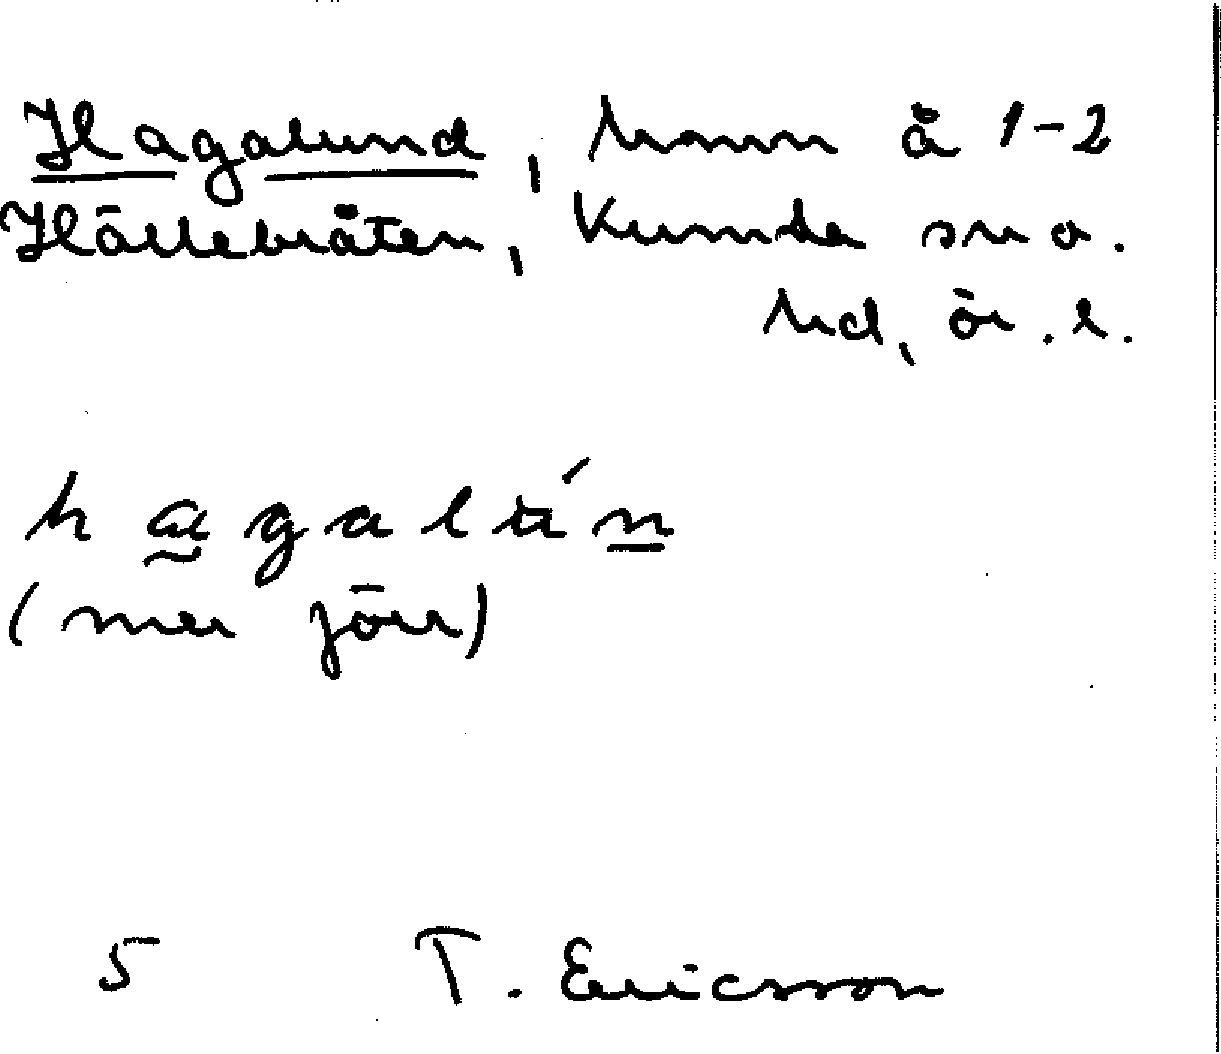 Hagalund, namn å 1-2
Hällebråten, Kumla sn o.
hd, ör. l.
hagalún
(mer förr)
5 T. Ericsson